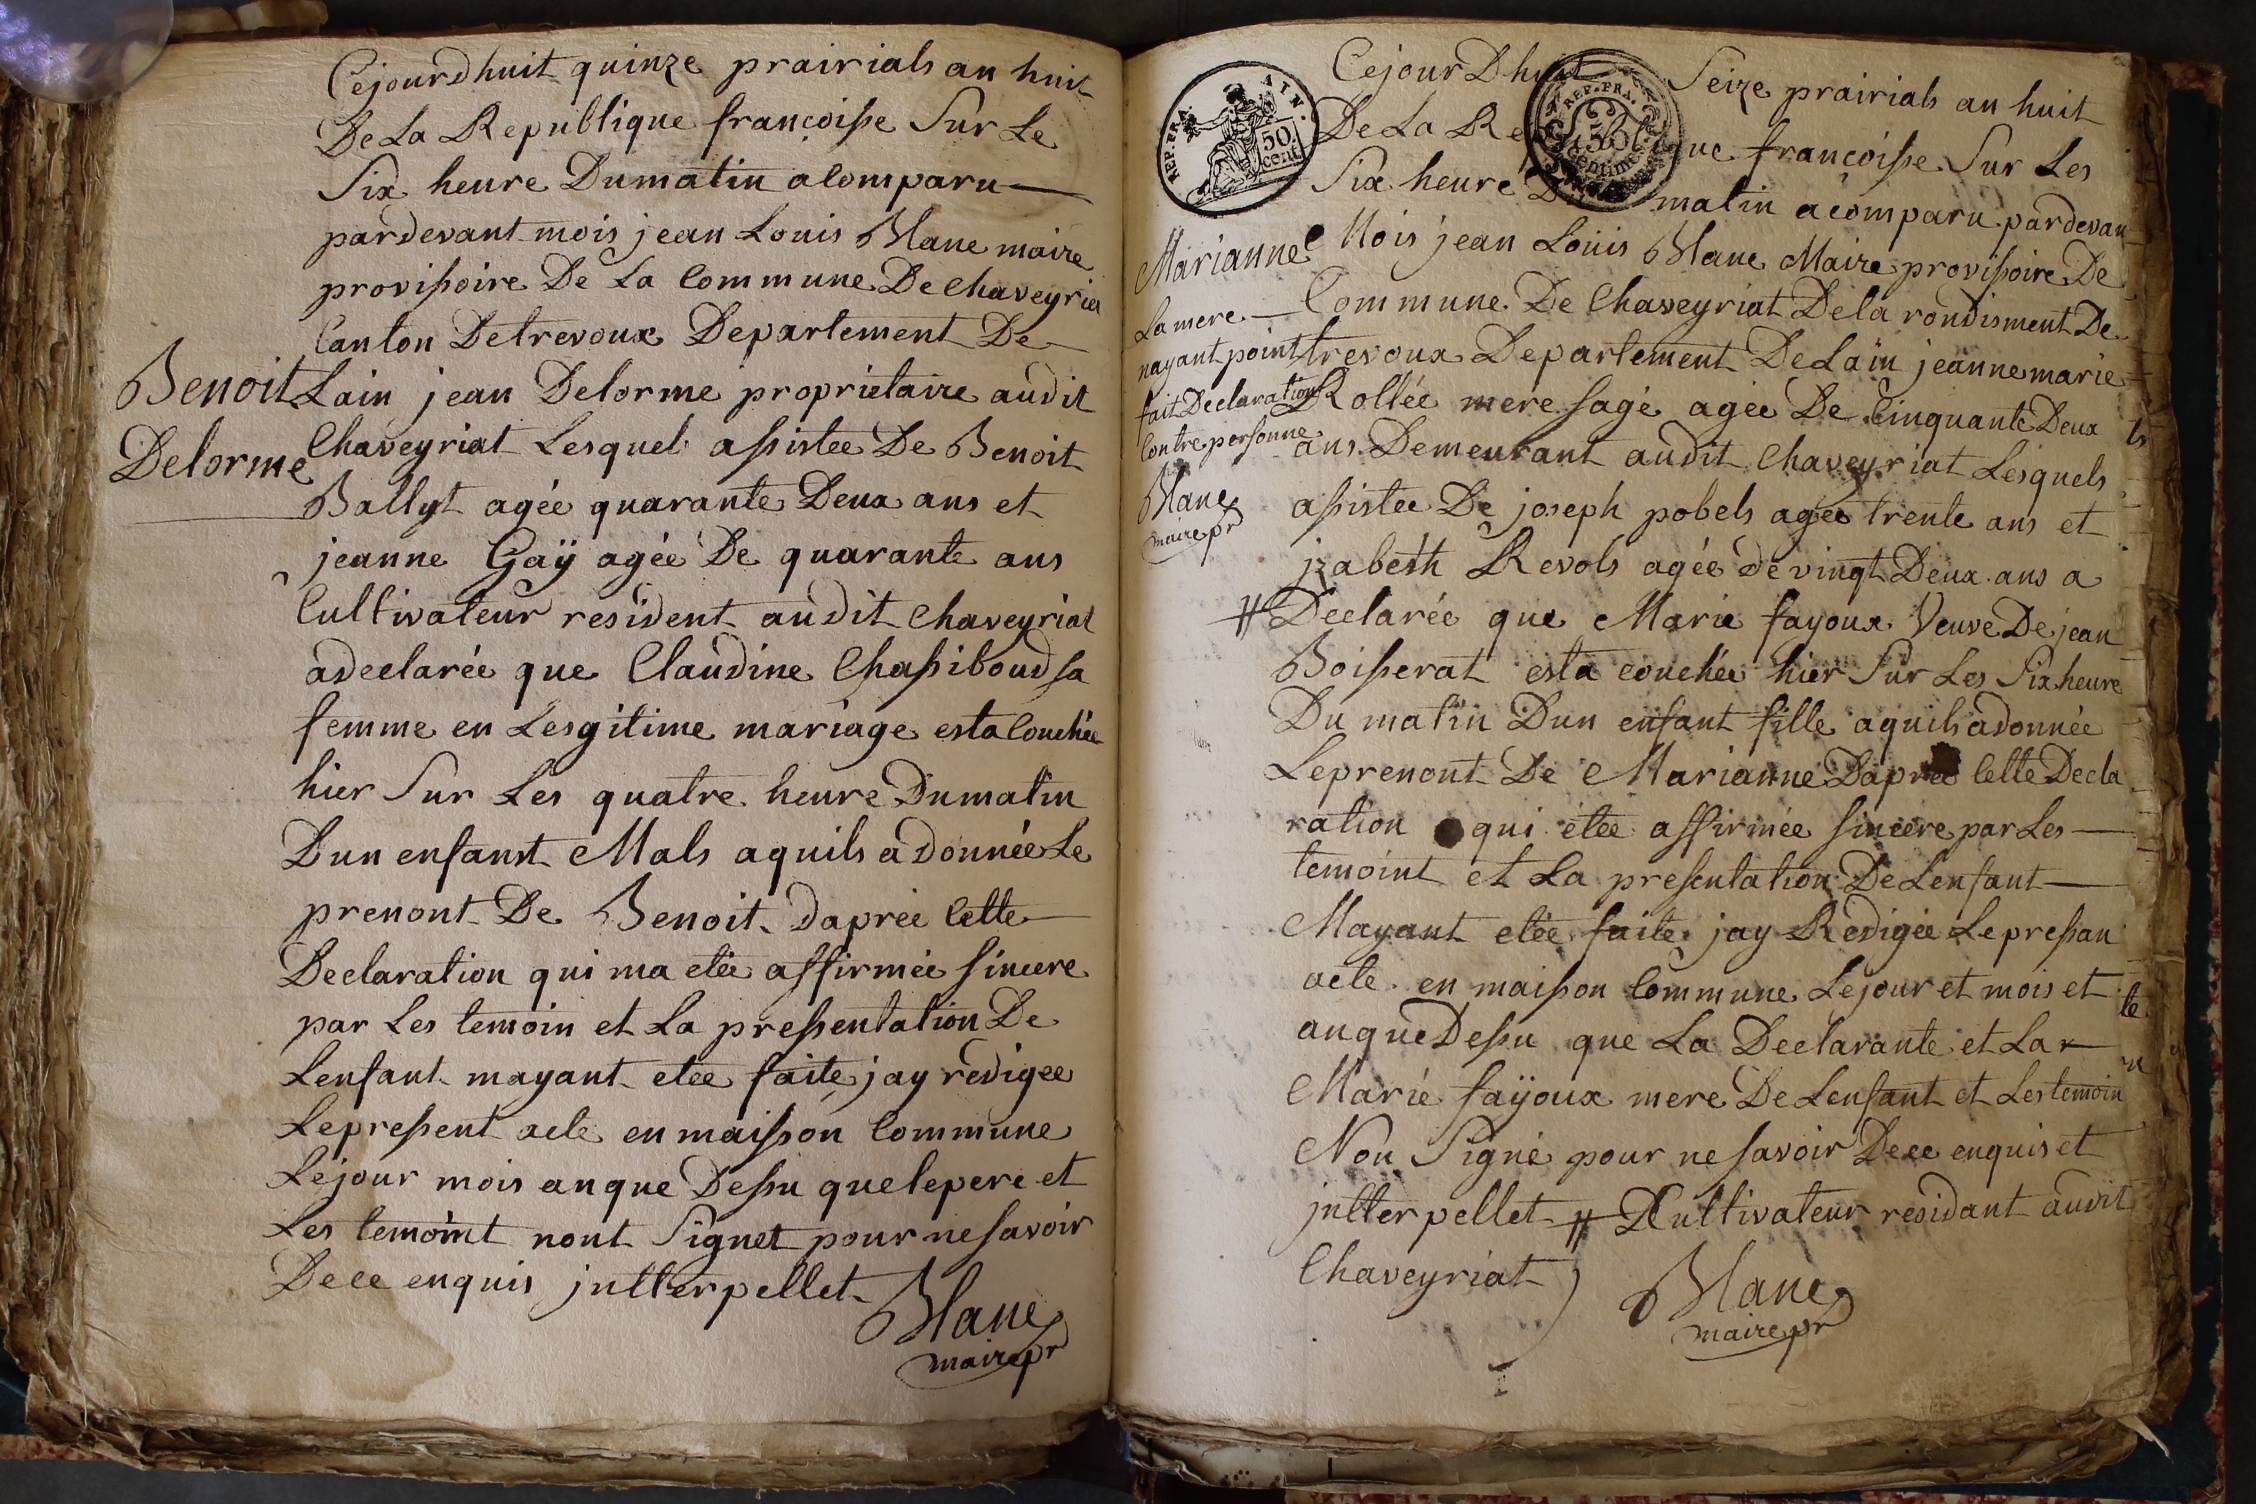 Cejourdhuit quinze prairials an huit
De La Republique françoisse Sur Le
Six heure Dumatin a Comparu
pardevant mois jean Louis Blanc maire
provissoire De La Commune De Chaveyriat
Canton Detrevoux Departement De
Benoit
Delorme
Lain jean Delorme proprietaire audit
Chaveyriat Lesquel assistee De Benoit
Ballyt agée quarante Deux ans et
jeanne Gaÿ agée De quarante ans
Cultivateur resident audit Chaveyriat
adeclarée que Claudine Chassiboud sa
femme en Lesgitime mariage esta Couchée
hier Sur Les quatre heure Dumatin
Dun enfant Mals aquils a donnée Le
prenont De Benoit daprée Cette
Declaration qui ma etée affirmée sincere
par Les temoin et La pressentation De
Lenfant mayant etee faite jay redigee
Lepressent acte en maisson Commune
Lejour mois anque Dessu quelepere et
Les temoint nont Signet pour nesavoir
Dece enquis jntterpellet
Blanc
maire pr
REP. FRA. AIN.
50
cent.
REP. FRA.
Cejour Dhuit Seize prairials an huit
De La Republique françoisse Sur Les
Six heure Du matin a comparu pardevan
Mois jean Loüis Blanc Maire provissoire De
Commune De Chaveyriat Dela rondisment De
trevoux Departement DeLain jeannemarie
Rollée mere sage agée De Cinquante Deux
ans Demeurant audit Chaveyriat Lesquels
assistee De joseph pobels agée trente ans et
jzabeth Revols agée de vingt Deux ans a
# Declarée que Marie fayoux Veuve De jean
Boisserat esta couchée hier Sur Les Six heure
Du matin Dun enfant fille aquils adonnée
Leprenont De Marianne Daprée Cette Decla
ration qui étée affirmée sincere par Les
temoint et La presentation DeLenfant
Mayant etée faite jay Redigée Lepressan
acte en maisson Commune Lejour et mois et
anque Dessu que La Declarante et La
Marie faÿoux mere DeLenfant et Lestemoin
Non Signé pour nesavoir Dece enquis et
jntterpellet # Cultivateur residant audit
Chaveyriat
Blanc
maire pr
Marianne
La mere
nayant point
fait Declaration
Contre personne
Blanc
maire pr